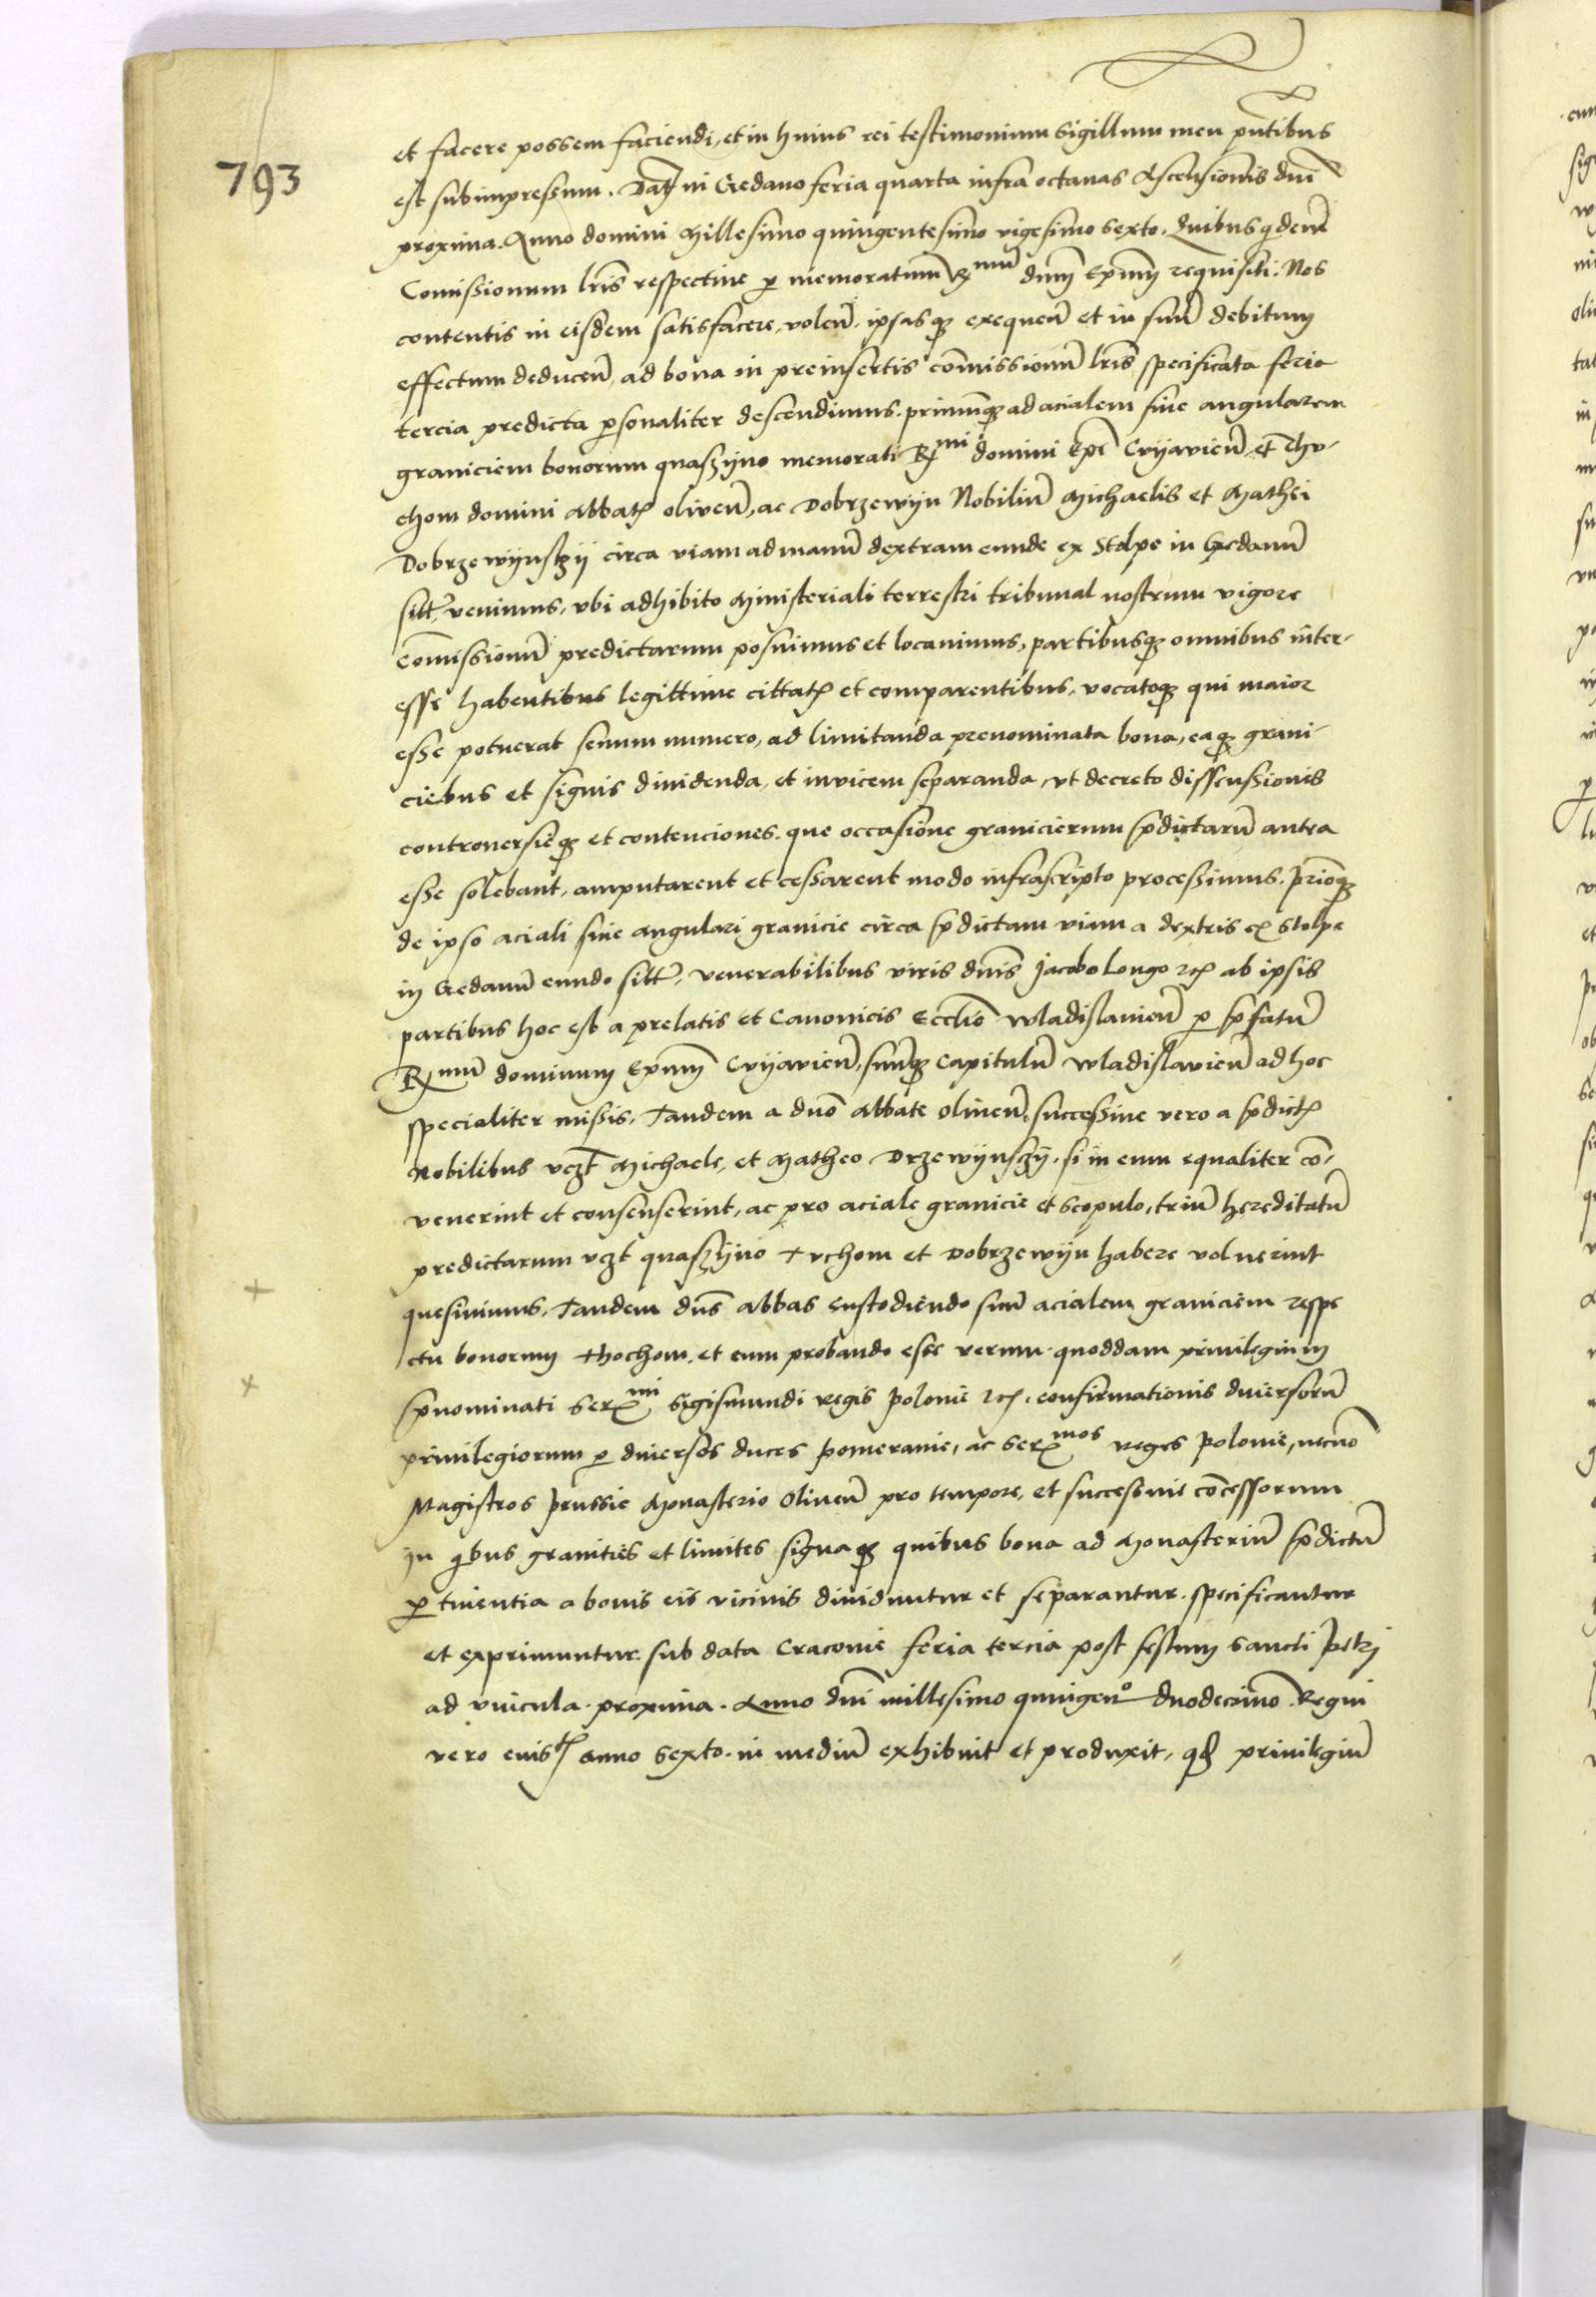 793
et facere possem faciendi, et in huius rei testimonium sigillum meu pñtibus
est subimpressum. Dat in Gedano feria quarta infra octauas Ascensionis dni
proxima. Anno domini Millesimo quingentesimo vigesimo sexto. Quibus qdem
Comissionum lris respectiue p memoratum Rmum dnm Epm requisiti. Nos
contentis in eisdem satisfacere, volen, ipsasq exequen et in suu debitum
effectum deducen, ad bona in preinsertis comissionu lris specificata feria
tercia predicta psonaliter descendimus. primuq ad acialem siue angularem
graniciem bonorum quaszyno memorati Rmi domini Epi Cuyavien, et Thu-
chom domini Abbatis oliven, ac Dobrzewyn Nobiliu Michaelis et Mathei
Dobrzewynszky circa viam ad manu dextram eunde ex Stolpe in Gedanu
sitt, venimus, vbi adhibito Ministeriali terrestri tribunal nostrum vigore
comissionu predictarum posuimus et locauimus, partibusq omnibus inter-
esse habentibus legittime cittatis et comparentibus, vocatoq qui maior
esse potuerat senum numero, ad limitanda prenominata bona, eaq grani-
ciebus et signis diuidenda, et invicem separanda, vt decreto disscussionis
controuersieq et contenciones. que occasione granicierum pdictaru antea
esse solebant, amputarent et cessarent modo infrascripto processimus. primoq
de ipso aciali siue angulari granicie circa pdictam viam a dextris ex Stolpe
in Gedanu eundo sitt, venerabilibus viris dnis Jacobo Longo etc ab ipsis
partibus hoc est a prelatis et Canonicis Ecclie wladislauien p pfatu
Rmu dominum Epm Cuyavien, suuq Capitulu wladislavien ad hoc
specialiter missis, Tandem a dno Abbate Oliuen, successiue vero a pdictis
Nobilibus vczt Michaele, et Matheo Drzewynszky, si in eum equaliter co-
venerint et consenserint, ac pro aciale granicie et scopulo, triu hereditatu
predictarum vczt quaszyno Tuchom et Dobrzewyn habere voluerint
quesiuimus, Tandem dns Abbas custodiendo suu acialem graniciem respe
ctu bonorum Thochom, et eum probando esse verum quoddam priuilegium
pnominati Sermi Sigismundi regis polonie etc. confirmationis diuersoru
priuilegiorum p diuersos duces pomeranie, ac Sermos reges polonie, necno
Magistros prussie Monasterio Oliuen pro tempore, et succesiue cocessorum
In qbus granities et limites signaq quibus bona ad Monasteriu pdictu
ptinentia a bonis eis vicinis diuiduntur et separantur. specificantur
et exprimuntur. sub data Cracouie feria tercia post festum sancti Petri
ad vincula proxima. Anno dni millesimo quingeno duodecimo. Regni
vero eius anno sexto. in mediu exhibuit et produxit, qd priuilegiu